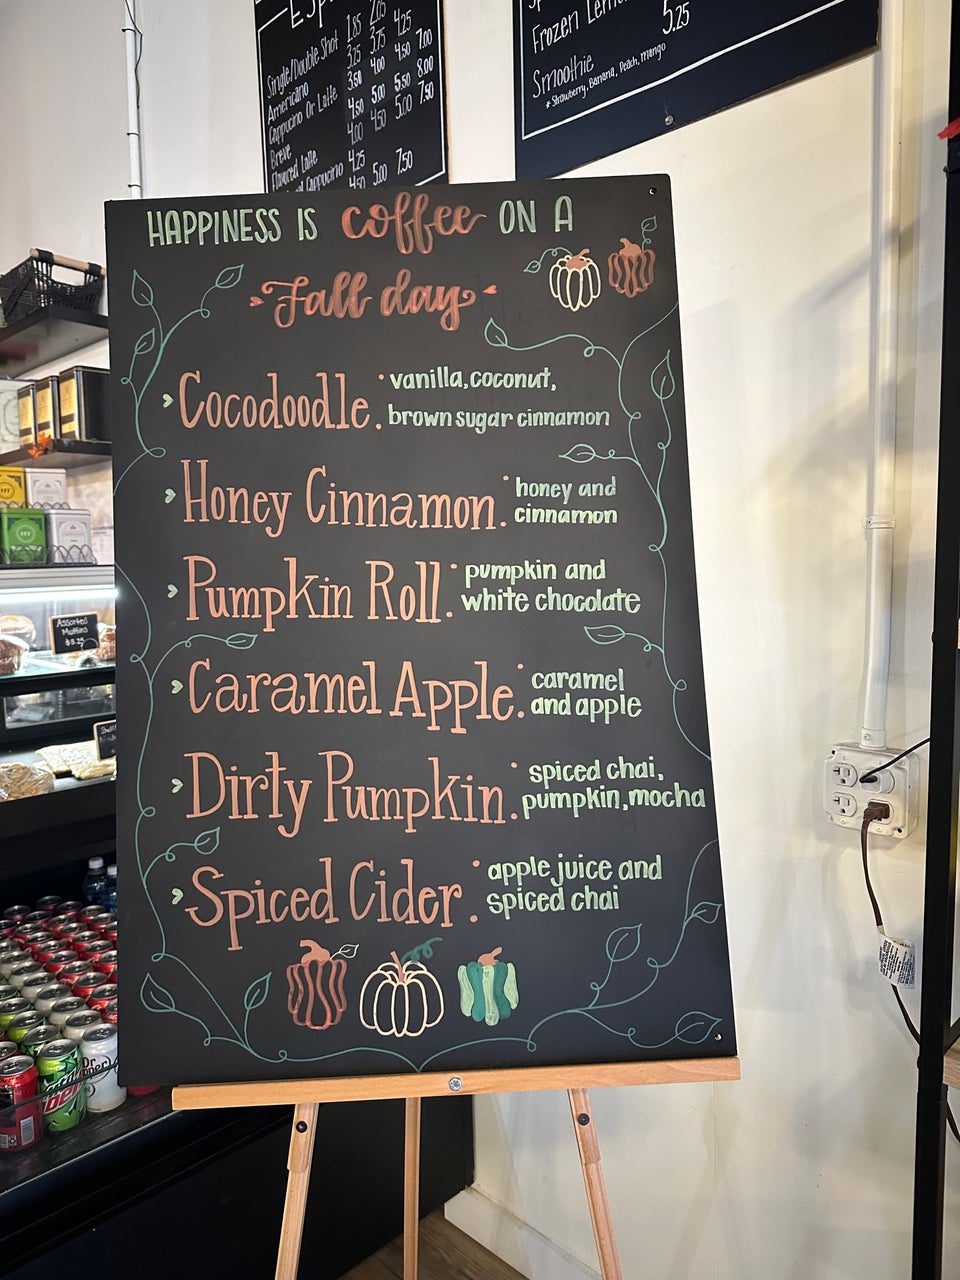 Single/Double Shot 1.85 2.05
Americano 3.25 3.75 4.25
Cappucino Or Latte 3.50 4.00 4.50 7.00
Breve 4.50 5.00 5.50 8.00
Flavored Latte 4.00 4.50 5.00 7.50
Cappucino 4.25
5.00 7.50
Frozen
5.25
Smoothie
*Strawberry, Banana, Peach, Mango
HAPPINESS IS coffee ON A
Fall day
Cocodoodle: vanilla, coconut,
brown sugar cinnamon
Honey Cinnamon: honey and
cinnamon
Pumpkin Roll: pumpkin and
white chocolate
Caramel Apple: caramel
and apple
Dirty Pumpkin: spiced chai,
pumpkin, mocha
Spiced Cider: apple juice and
spiced chai
HT
HT
Assorted
Muffins
$3.25
Dr